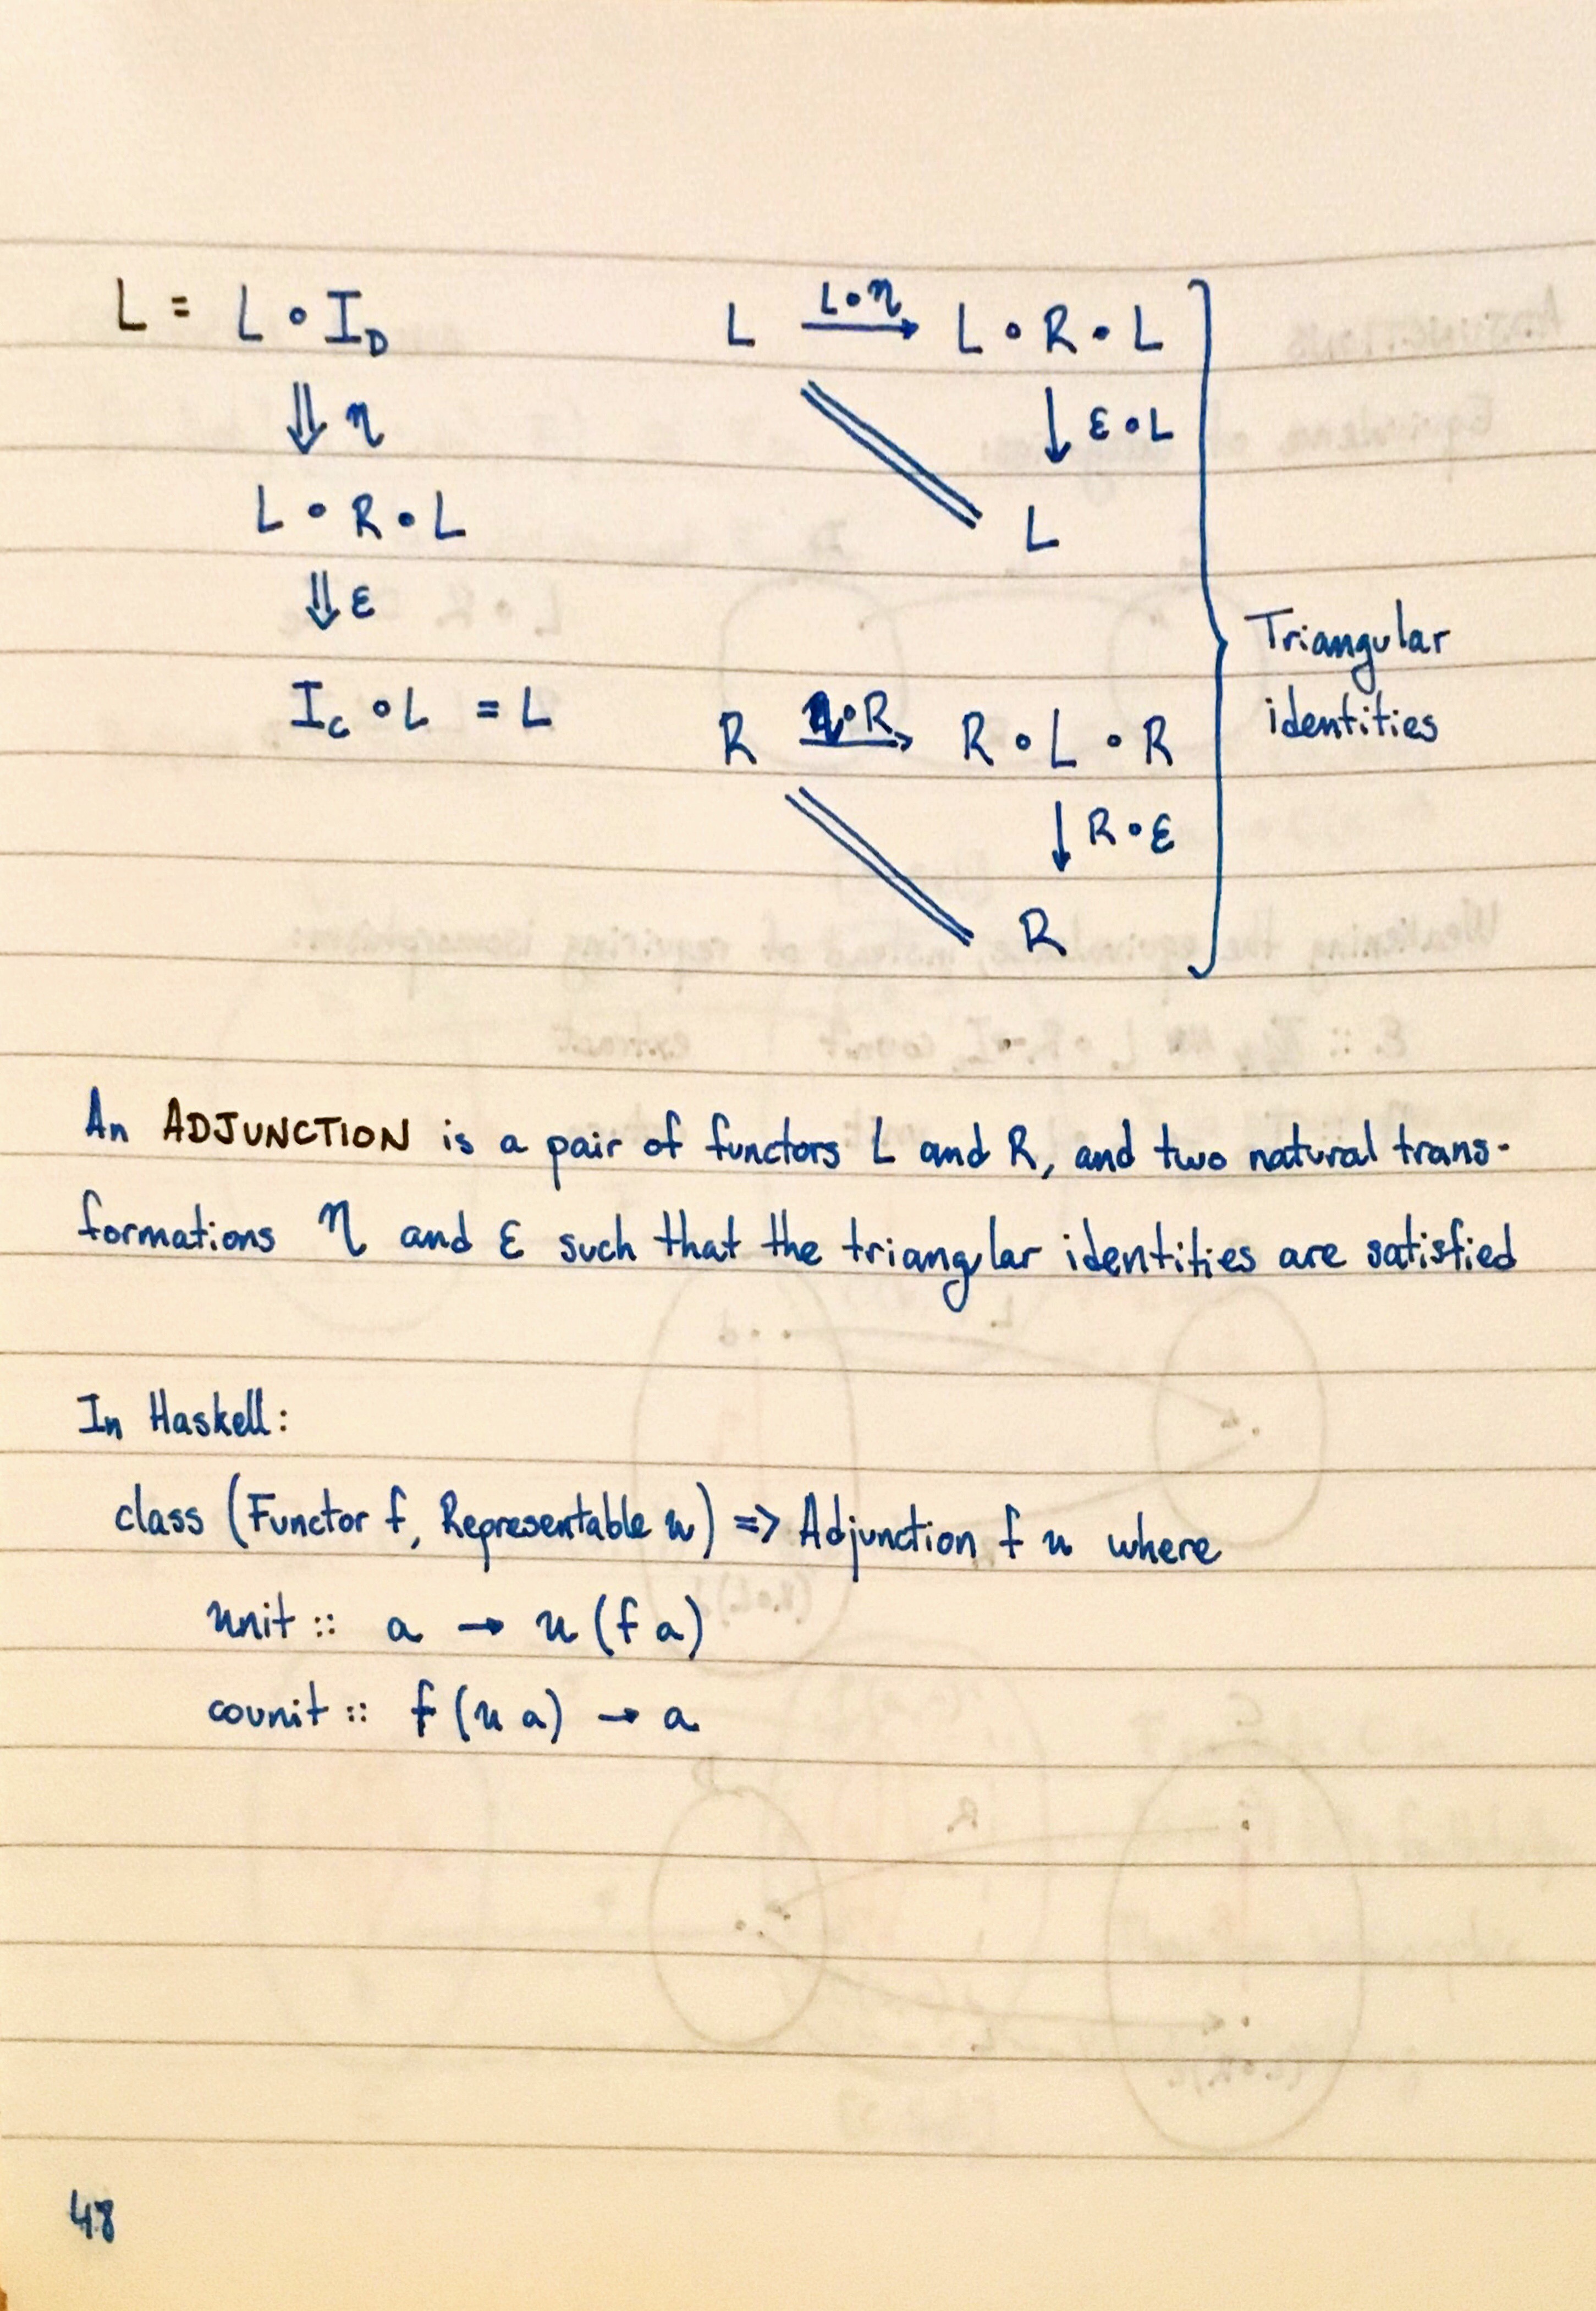 L = L ∘ I_D
⇓ η
L ∘ R ∘ L
⇓ ε
I_C ∘ L = L
L L∘η → L ∘ R ∘ L
↓ ε∘L
L
R η∘R → R ∘ L ∘ R
↓ R∘ε
R
Triangular
identities
An ADJUNCTION is a pair of functors L and R, and two natural trans-
formations η and ε such that the triangular identities are satisfied
In Haskell:
class (Functor f, Representable u) => Adjunction f u where
unit :: a → u (f a)
counit :: f (u a) → a
48